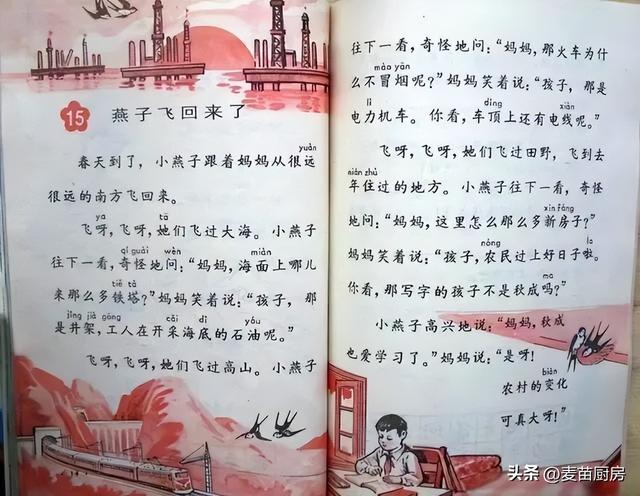 15 燕子飞回来了
yuǎn
春天到了，小燕子跟着妈妈从很远
很远的南方飞回来。
ya tā
飞呀，飞呀，她们飞过大海。小燕子
qí guài wèn miàn
往下一看，奇怪地问：“妈妈，海面上哪儿
tiě tǎ
来那么多铁塔？”妈妈笑着说：“孩子，那
jǐng jià gōng cǎi dǐ yóu
是井架，工人在开采海底的石油呢。”
飞呀，飞呀，她们飞过高山。小燕子
往下一看，奇怪地问：“妈妈，那火车为什
mào yān
么不冒烟呢？”妈妈笑着说：“孩子，那是
lì dǐng xiàn
电力机车。你看，车顶上还有电线呢。”
飞呀，飞呀，她们飞过田野，飞到去
nián zhù
年住过的地方。小燕子往下一看，奇怪
xīn fáng
地问：“妈妈，这里怎么那么多新房子？”
nóng la
妈妈笑着说：“孩子，农民过上好日子啦。
ma
你看，那写字的孩子不是秋成吗？”
小燕子高兴地说：“妈妈，秋成
也爱学习了。”妈妈说：“是呀！
biàn
农村的变化
可真大呀！”
头条 @麦苗厨房